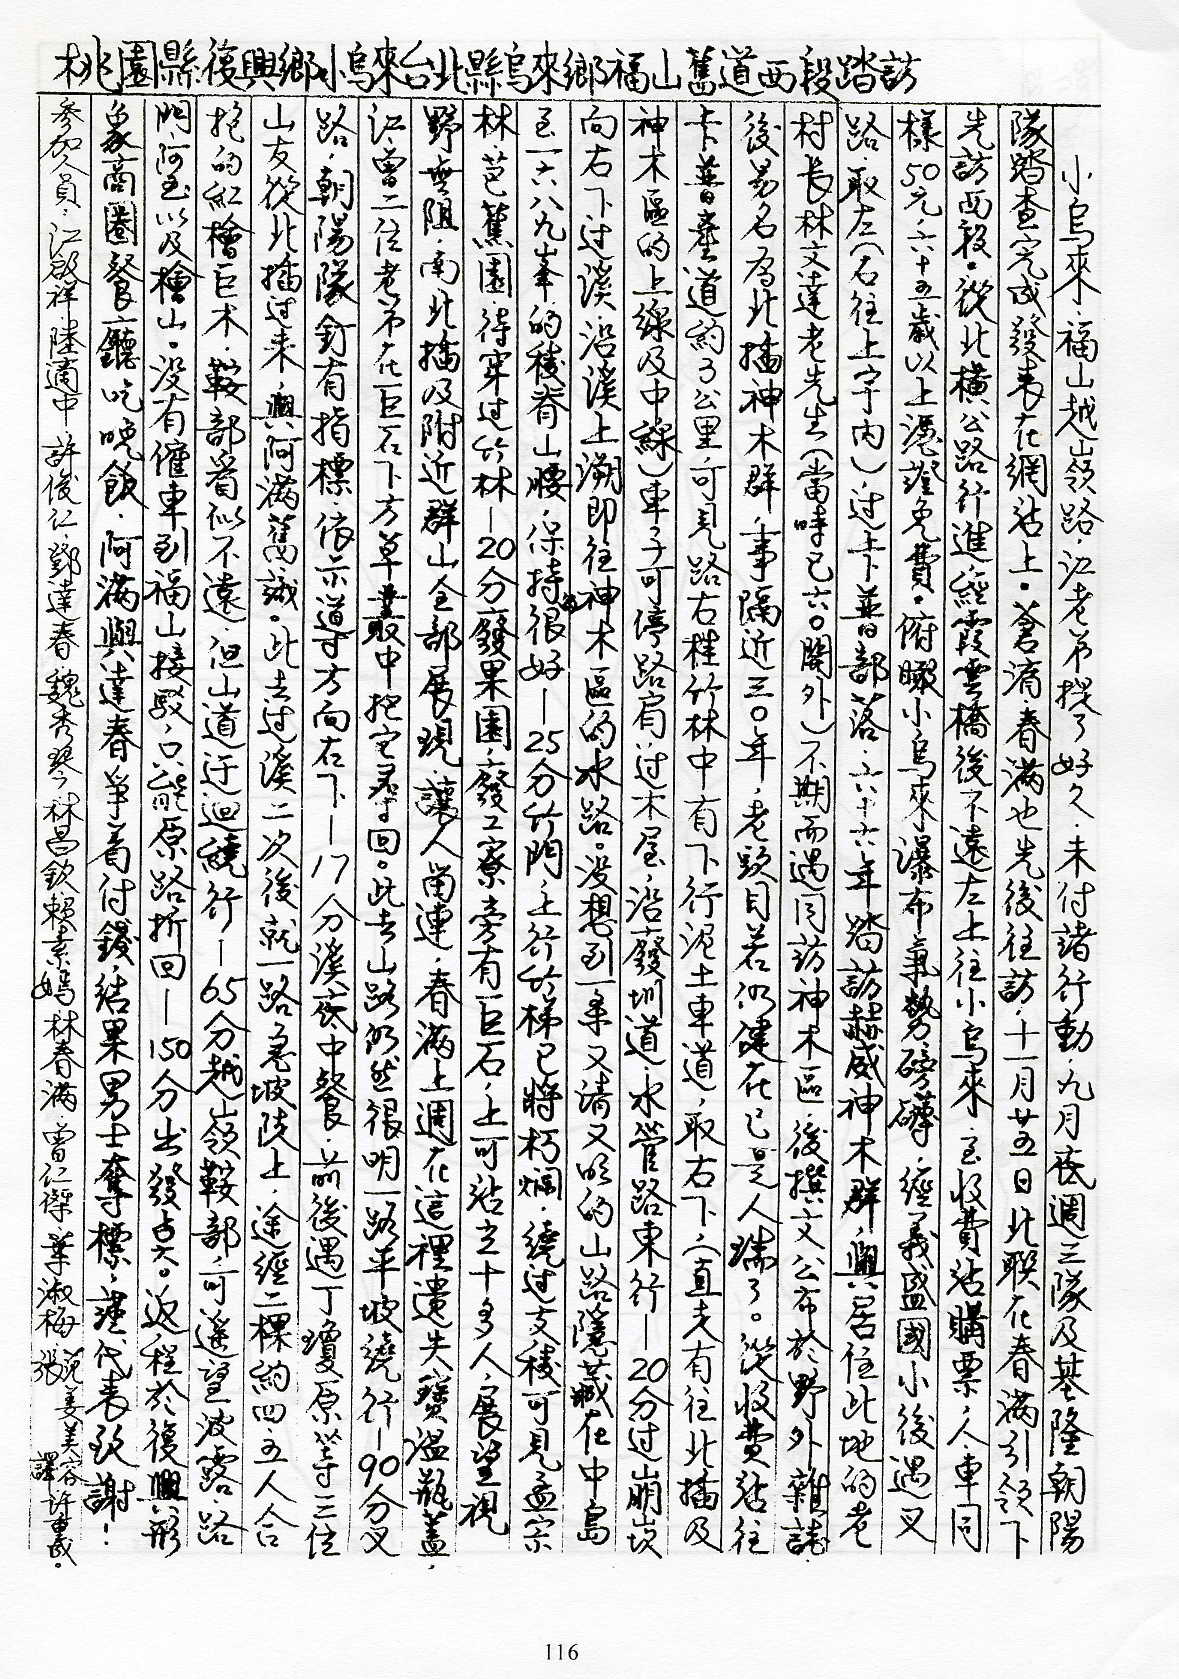 桃園縣復興鄉小烏來台北縣烏來鄉福山舊道西段踏訪
小烏來·福山越山嶺路，江老弟提了好久，未付諸行動，九月底週三隊及基隆朝陽
隊踏查完成發表在網站上。蒼清、春滿也先後往訪，十一月廿五日北聯在春滿引領下
先訪西段。從北橫公路行進，經霞雲橋後不遠左上往小烏來，至收費站購票，人、車同
樣50元，六十五歲以上憑證免費。俯瞰小烏來瀑布氣勢磅礴，經義盛國小後遇叉
路，取左（右往上宇內）過上卡普部落，六十六年踏訪赫威神木群，與居住此地的老
村長林文達老先生（當時已六〇開外）不期而遇同訪神木區，後撰文公布於野外雜誌
後易名為北插神木群，事隔近三〇年，老頭目若仍健在已是人瑞了。從收費站往
卡普產道約3公里，可見路右桂竹林中有下行泥土車道，取右下，（直走有往北插及
神木區的上線及中線）車子可停路肩，過木屋、沿廢圳道、水管路東行—20分過崩崁
向右下過溪，沿溪上溯即往神木區的水路。沒想到一条又清又明的山路隱藏在中島
至一六八九峯的稜脊山腰，保持很好—25分竹門，上行竹梯已將朽爛，繞过支稜可見孟宗
林、芭蕉園，待穿过竹林—20分廢果園，廢工寮旁有巨石，上可站立十多人，展望視
野無阻，南北插及附近群山全部展現，讓人留連，春滿上週在這裡遺失寶溫瓶蓋，
江、曾二位老弟在巨石下方草叢中把它尋回。此去山路仍然很明，一路平坡繞行—90分叉
路，朝陽隊釘有指標，依示導方向右下—17分溪底中餐，前後遇丁瓊原等三位
山友從北插过来，與阿滿舊識。此去过溪二次後就一路急坡陡上，途經二棵約四、五人合
抱的紅檜巨木，鞍部看似不遠，但山道迂迴繞行—65分越嶺鞍部，可遙望波露、路
門、阿玉以及檜山。沒有僱車到福山接駁，只能原路折回—150分出發点六。返程於復興形
象商圈餐廳吃晚飯，阿滿與達春爭着付錢，結果男士奪標，謹代表致謝！
參加人員：江啟祥、陸適中、許俊仁、鄧達春、魏秀琴、林昌欽、賴素嫣、林春滿、曾仁傑、葉淑梅、范姜美容、張譯、許惠成。
116